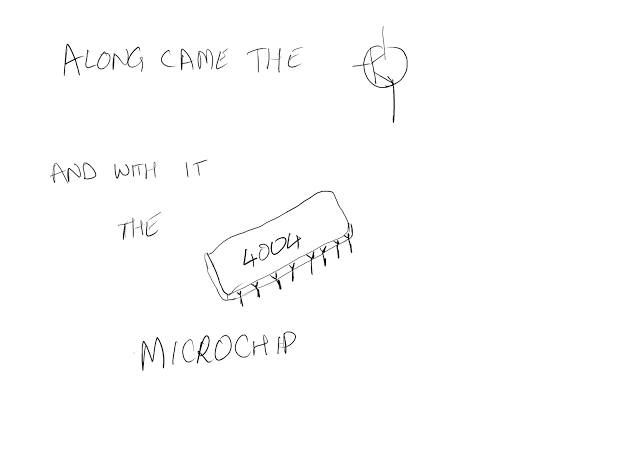 ALONG CAME THE
AND WITH IT
THE
4004
MICROCHIP